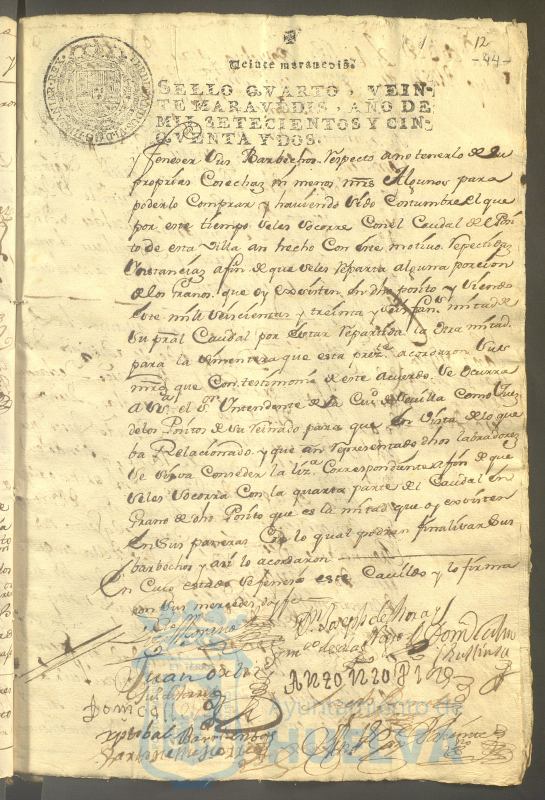 12
-44-
Veinte maravedis.
SELLO QVARTO, VEIN-
TE MARAVEDIS, AÑO DE
MIL SETECIENTOS Y CIN-
QVENTA Y DOS.
y fenecer sus Barbechos respecto a no tenerlo de su
propias Cosechas ni menos mrs Algunos para
poderlo Comprar y haviendo sido Costumbre el que
por este tiempo seles socorre Con el Caudal del Posi
to de esta Villa an hecho Con este motivo repetidas
Ynstancias afin de que seles reparta alguna porcion
de los granos que oy existen en dho posito y siendo
este mil seiscientas y treinta y seis fans mitad de
su pral Caudal por estar repartida la otra mitad
para la sementera que esta prete acordaron sus
mrds que Con testimonio de este Acuerdo se ocurra
a el Sr Yntendente de la Ciud de Sevilla como Juez
delos Positos de su reinado para que en vista de lo que
ba Relacionado y que an representado dhos labradores
se sirva Conseder la liza Correspondiente afin de que
seles socorra Con la quarta parte del Caudal en
grano de dho Posito que es la mitad que oy existen
en sus paneras Con lo qual podran finalisar sus
barbechos y asi lo acordaron
En Cuio estado se fenecio este Cavildo y lo firma
ron sus mercedes doy fee
Dn Joseph de
Juan
Ayuntamiento de
HUELVA